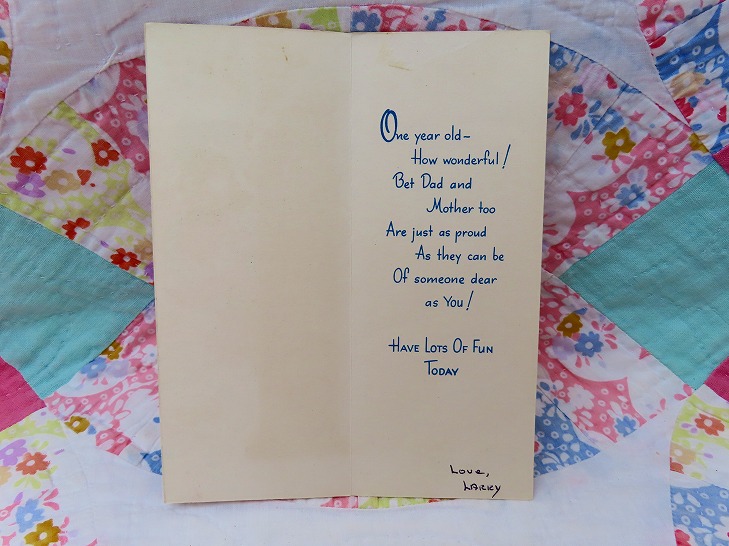 One year old—
How wonderful!
Bet Dad and
Mother too
Are just as proud
As they can be
Of someone dear
as You!
HAVE LOTS OF FUN
TODAY
Love,
LARRY